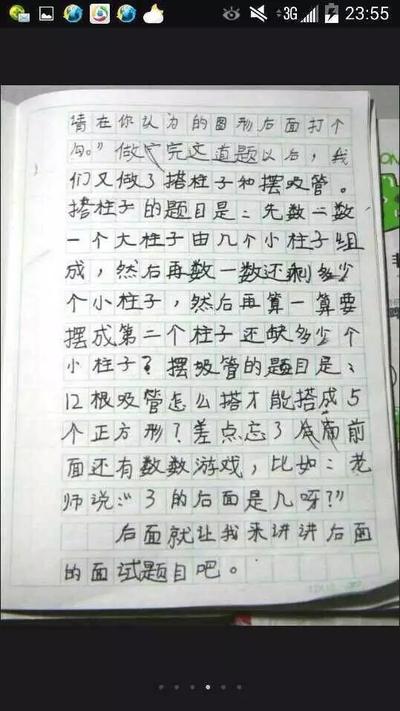 3G 23:55
请在你认为的图形后面打个
勾。”做完这道题以后，我
们又做了搭柱子和摆吸管。
搭柱子的题目是：先数一数
一个大柱子由几个小柱子组
成，然后再数一数还剩多少
个小柱子，然后再算一算要
摆成第二个柱子还缺多少个
小柱子？摆吸管的题目是：
12根吸管怎么搭才能搭成5
个正方形？差点忘了前
面还有数数游戏，比如：老
师说：“3的后面是几呀？”
后面就让我来讲讲后面
的面试题目吧。